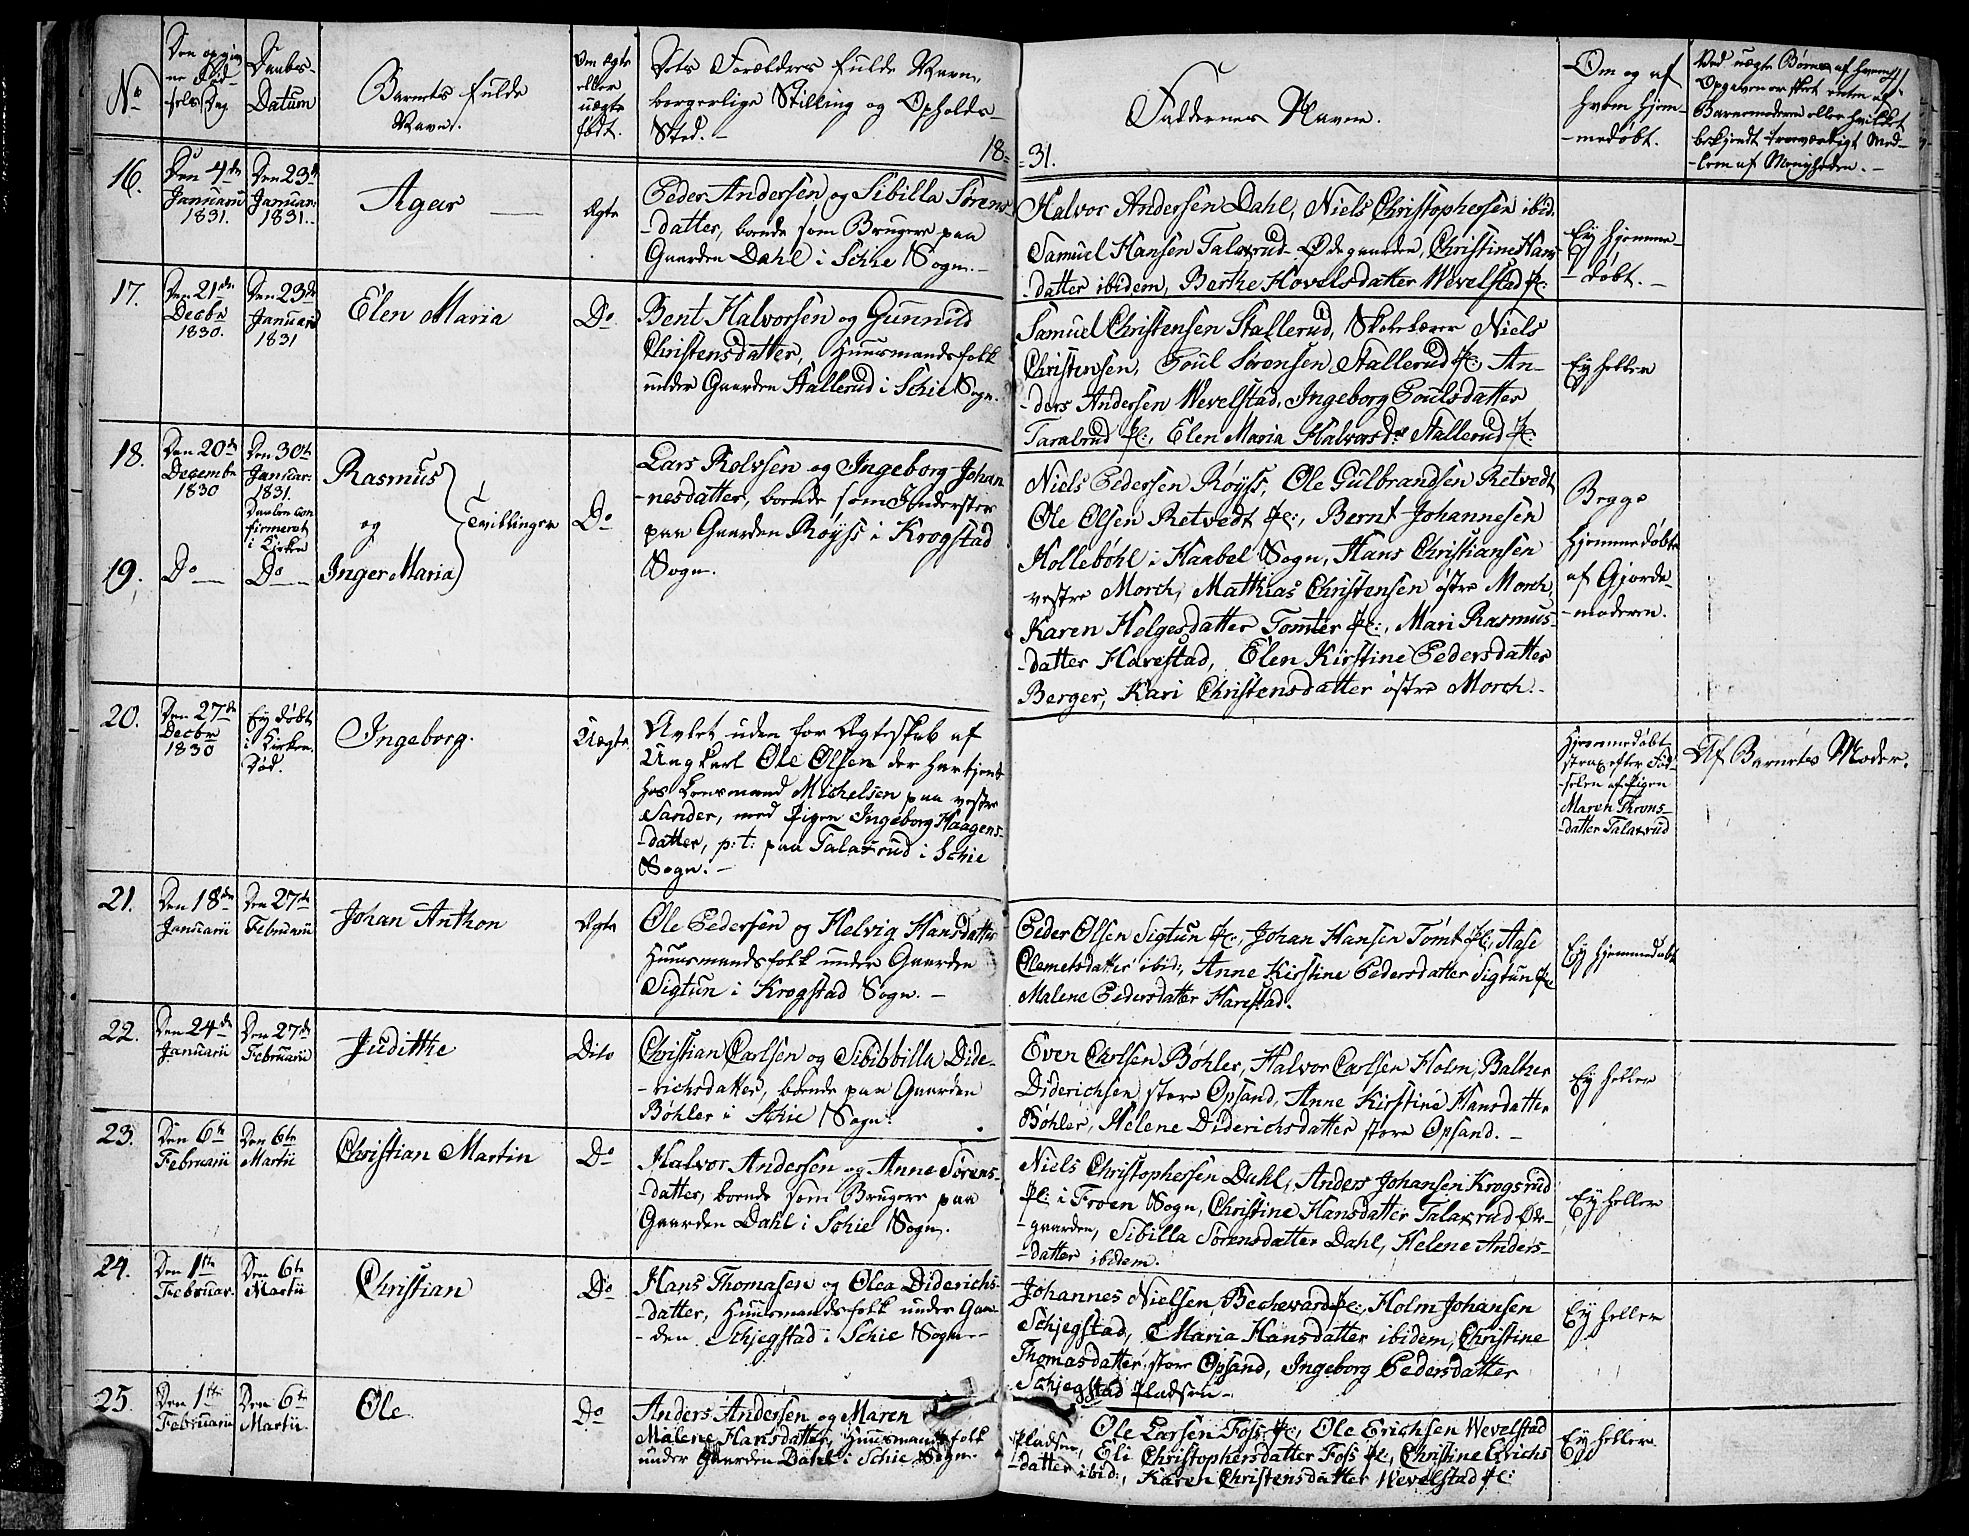 No
Den opgiv
ne Fød
sels Dag
Daabs-
Datum
Barnets fulde
Navn.
Om ægte
eller
uægte
født.
Dets Forældres fulde Navn,
borgerlige Stilling og Opholds-
Sted. -
Faddernes Navne.
Om og af
hvem hjem-
medøbt.
Ved uægte Børn af hvem
Opgaven er skeet enten af
Barnemoderen eller hvilket
bekjendt troværdigt Med-
-lem af Menigheden. -
18=
=31.
16.
Den 4de
Januarii
1831.
Den 23de
Januar:
1831.
Agar
Ægte
Peder Andersen og Sibilla Sørens
-datter, boende som Brugere paa
Gaarden Dahl i Schie Sogn. -
Halvor Andersen Dahl, Niels Christophersen ibid:
Samuel Hansen Talaxrud Ødegaarden, Christine Hans-
-datter ibidem, Berthe Hovelsdatter Wevelstad Pl:
Ey hjemme-
-døbt. -
17.
Den 21de
Decbr
1830.
Den 23de
Januarii
1831
Elen Maria
Do
Bent Halvorsen og Gunnild
Christensdatter, Huusmandsfolk
under Gaarden Stallerud i Schie Sogn.
Samuel Christensen Stallerud, Skolelærer Niels
Christensen, Poul Sørensen Stallerud Pl: An-
-ders Andersen Wevelstad, Ingeborg Poulsdatter
Taralrud Pl:, Elen Maria Halvorsdr Stallerud Pl:
Ey heller
18.
Den 20de
Decembr
1830
Den 30te
Januar:
1831.
Daaben con
firmeret
i Kirken
Rasmus
og
Tvillinger
Do
Lars Rolvsen og Ingeborg Johan
-nesdatter, boende som Inderster
paa Gaarden Røyss i Krogstad
Sogn.
19.
Do
Do
Inger Maria
Niels Pedersen Røyss, Ole Gulbrandsen Retvedt
Ole Olsen Retvedt Pl:, Bernt Johannesen
Hollebøhl i Haabel Sogn, Hans Christiansen
vestre Morch, Matthias Christensen østre Morch,
Karen Helgesdatter Tomter Pl:, Mari Rasmus-
-datter Harestad, Elen Kirstine Pedersdatter
Berger, Kari Christensdatter østre Morch. -
Begge
hjemmedøbte
af Gjorde-
-moderen.
20.
Den 27de
Decbr
1830
Ey døbt
i Kirken.
Død.
Ingeborg.
Uægte
Avlet uden for Ægteskab af
Ungkarl Ole Olsen der har tjent
hos Lensmand Michelsen paa vestre
Sander, med Pigen Ingeborg Haagens-
-datter, p:t: paa Talaxrud i Schie
Sogn. -
Hjemmedøbt
strax efter Fød-
selen af Pigen
Maren Throns-
-datter Talaxrud
Af Barnets Moder.
21.
Den 18de
Januarii
Den 27de
Februarii
Johan Anthon
Ægte
Ole Pedersen og Helvig Hansdatter
Huusmandsfolk under Gaarden
Sigtun i Krogstad Sogn. -
Peder Olsen Sigtun Pl:, Johan Hansen Tomt Pl:, Aase
Clemetsdatter ibid:, Anne Kirstine Pedersdatter Sigtun Pl:
Malene Pedersdatter Harestad.
Ey hjemmedøbt
22.
Den 24de
Januarii
Den 27de
Februarii
Judithe
Dito
Christian Carlsen og Sibibbilla Dide-
-richsdatter, boende paa Gaarden
Bøhler i Schie Sogn.
Even Carlsen Bøhler, Halvor Carlsen Holm, Balther
Diderichsen store Opsand, Anne Kirstine Hansdatter
Bøhler, Helene Diderichsdatter store Opsand. -
Ey heller
23.
Den 6te
Februarii
Den 6te
Martii
Christian Martin
Do
Halvor Andersen og Anne Sørens-
-datter, boende som Brugere paa
Gaarden Dahl i Schie Sogn.
Niels Christophersen Dahl, Anders Johansen Krogsrud
Pl: i Froen Sogn, Christine Hansdatter Talaxrud Øde-
-gaarden, Sibilla Sørensdatter Dahl, Helene Anders-
-datter ibidem.
Ey heller
24.
Den 1ste
Februar.
Den 6te
Martii
Christian
Do
Hans Thomasen og Olea Diderichs-
-datter, Huusmandsfolk under Gaar-
-den Schjegstad i Schie Sogn. -
Johannes Nielsen Bechevard Pl:, Holm Johansen
Schjegstad, Maria Hansdatter ibidem, Christine
Thomasdatter store Opsand, Ingeborg Pedersdatter
Schjegstad Pladsen -
Ey heller
25.
Den 1ste
Februarii
Den 6te
Martii.
Ole
Do
Anders Andersen og Maren
Malene Hansdatter, Huusmandsfolk
under Gaarden Dahl i Schie Sogn.
Ole Larsen Foss Pl:, Ole Erichsen Wevelstad
Pladsen, Eli Christophersdatter Foss Pl:, Christine Erichs
-datter ibid:, Karen Christensdatter Wevelstad Pl:
Ey heller.